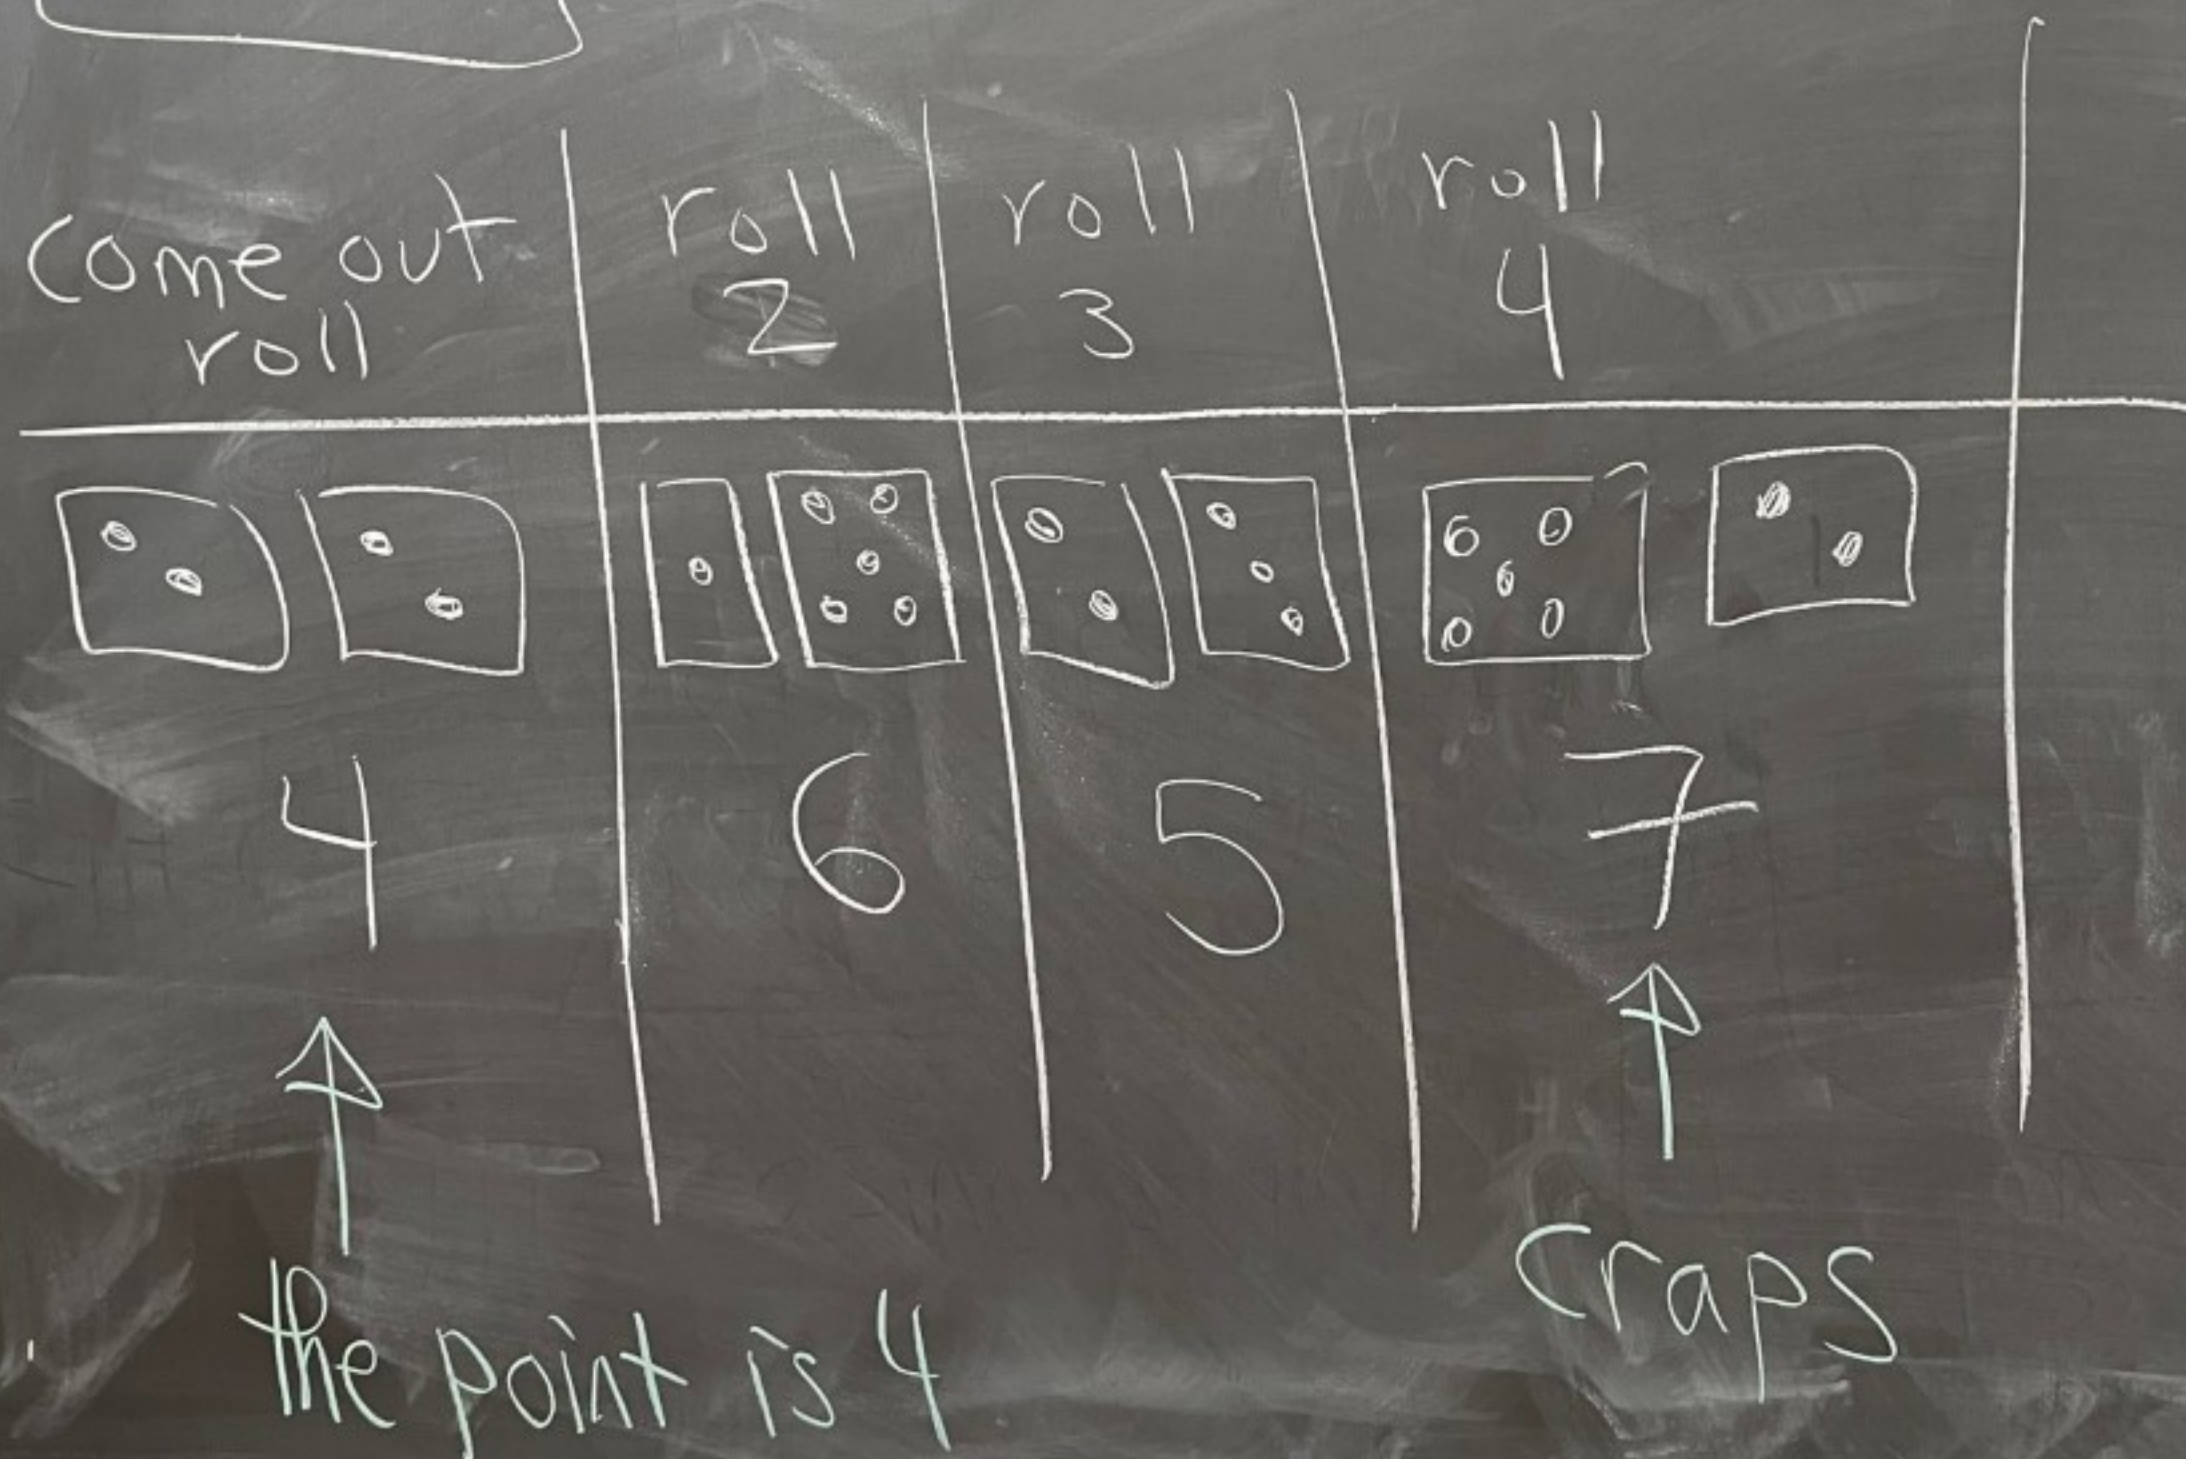 come out
roll
roll
2
roll
3
roll
4
4
6
5
7
the point is 4
craps